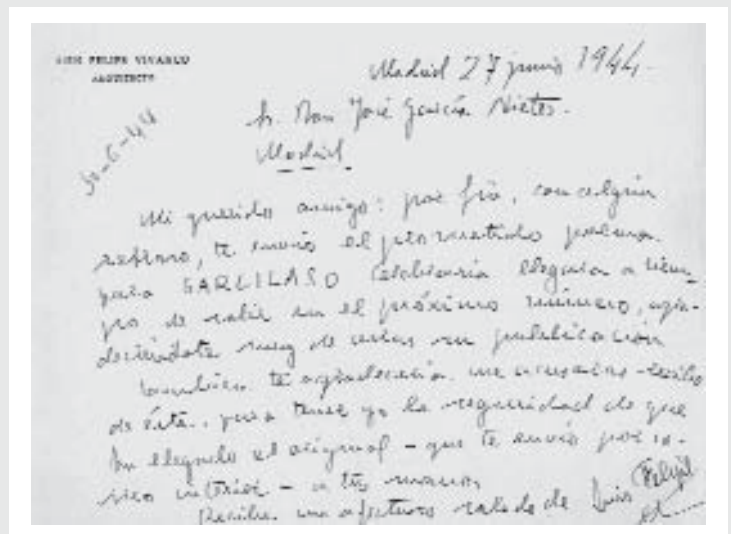 LUIS FELIPE VIVANCO
ARQUITECTO
Madrid 27 junio 1944.
Sr. Don José García Nieto.
Madrid
30-6-44
Mi querido amigo: por fin, con algún
retraso, te envío el prometido poema
para GARCILASO Celebraría llegara a tiem-
po de salir en el próximo número, agra-
deciéndote muy de veras su publicación
también te agradecería me acusaras recibo
de ésta, para tener yo la seguridad de que
ha llegado el original - que te envío por co-
rreo interior - a tus manos
Recibe un afectuoso saludo de Luis Felipe